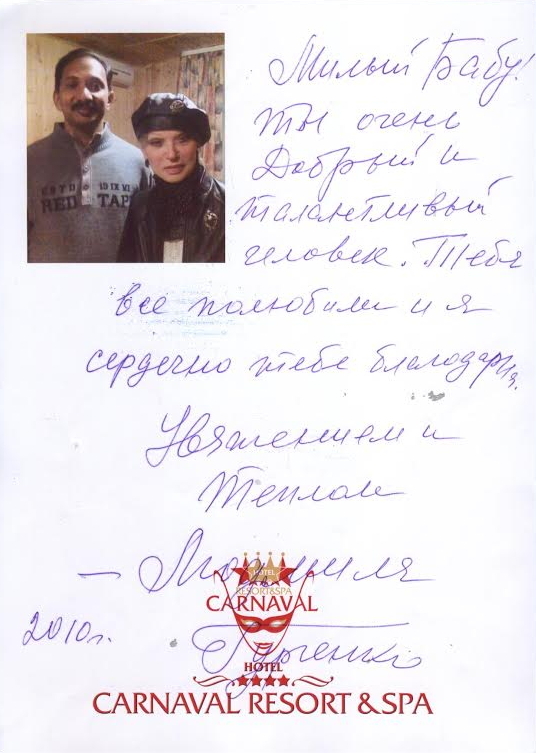 Милый Бабу!
ты очень
Добрый и
талантливый
человек. Тебя
все полюбили и я
сердечно тебе благодарна.
Уважением и
Теплом
– Людмила
Гурченко
2010 г.
RED TAPE
HOTEL
RESORT&SPA
CARNAVAL
HOTEL
CARNAVAL RESORT & SPA